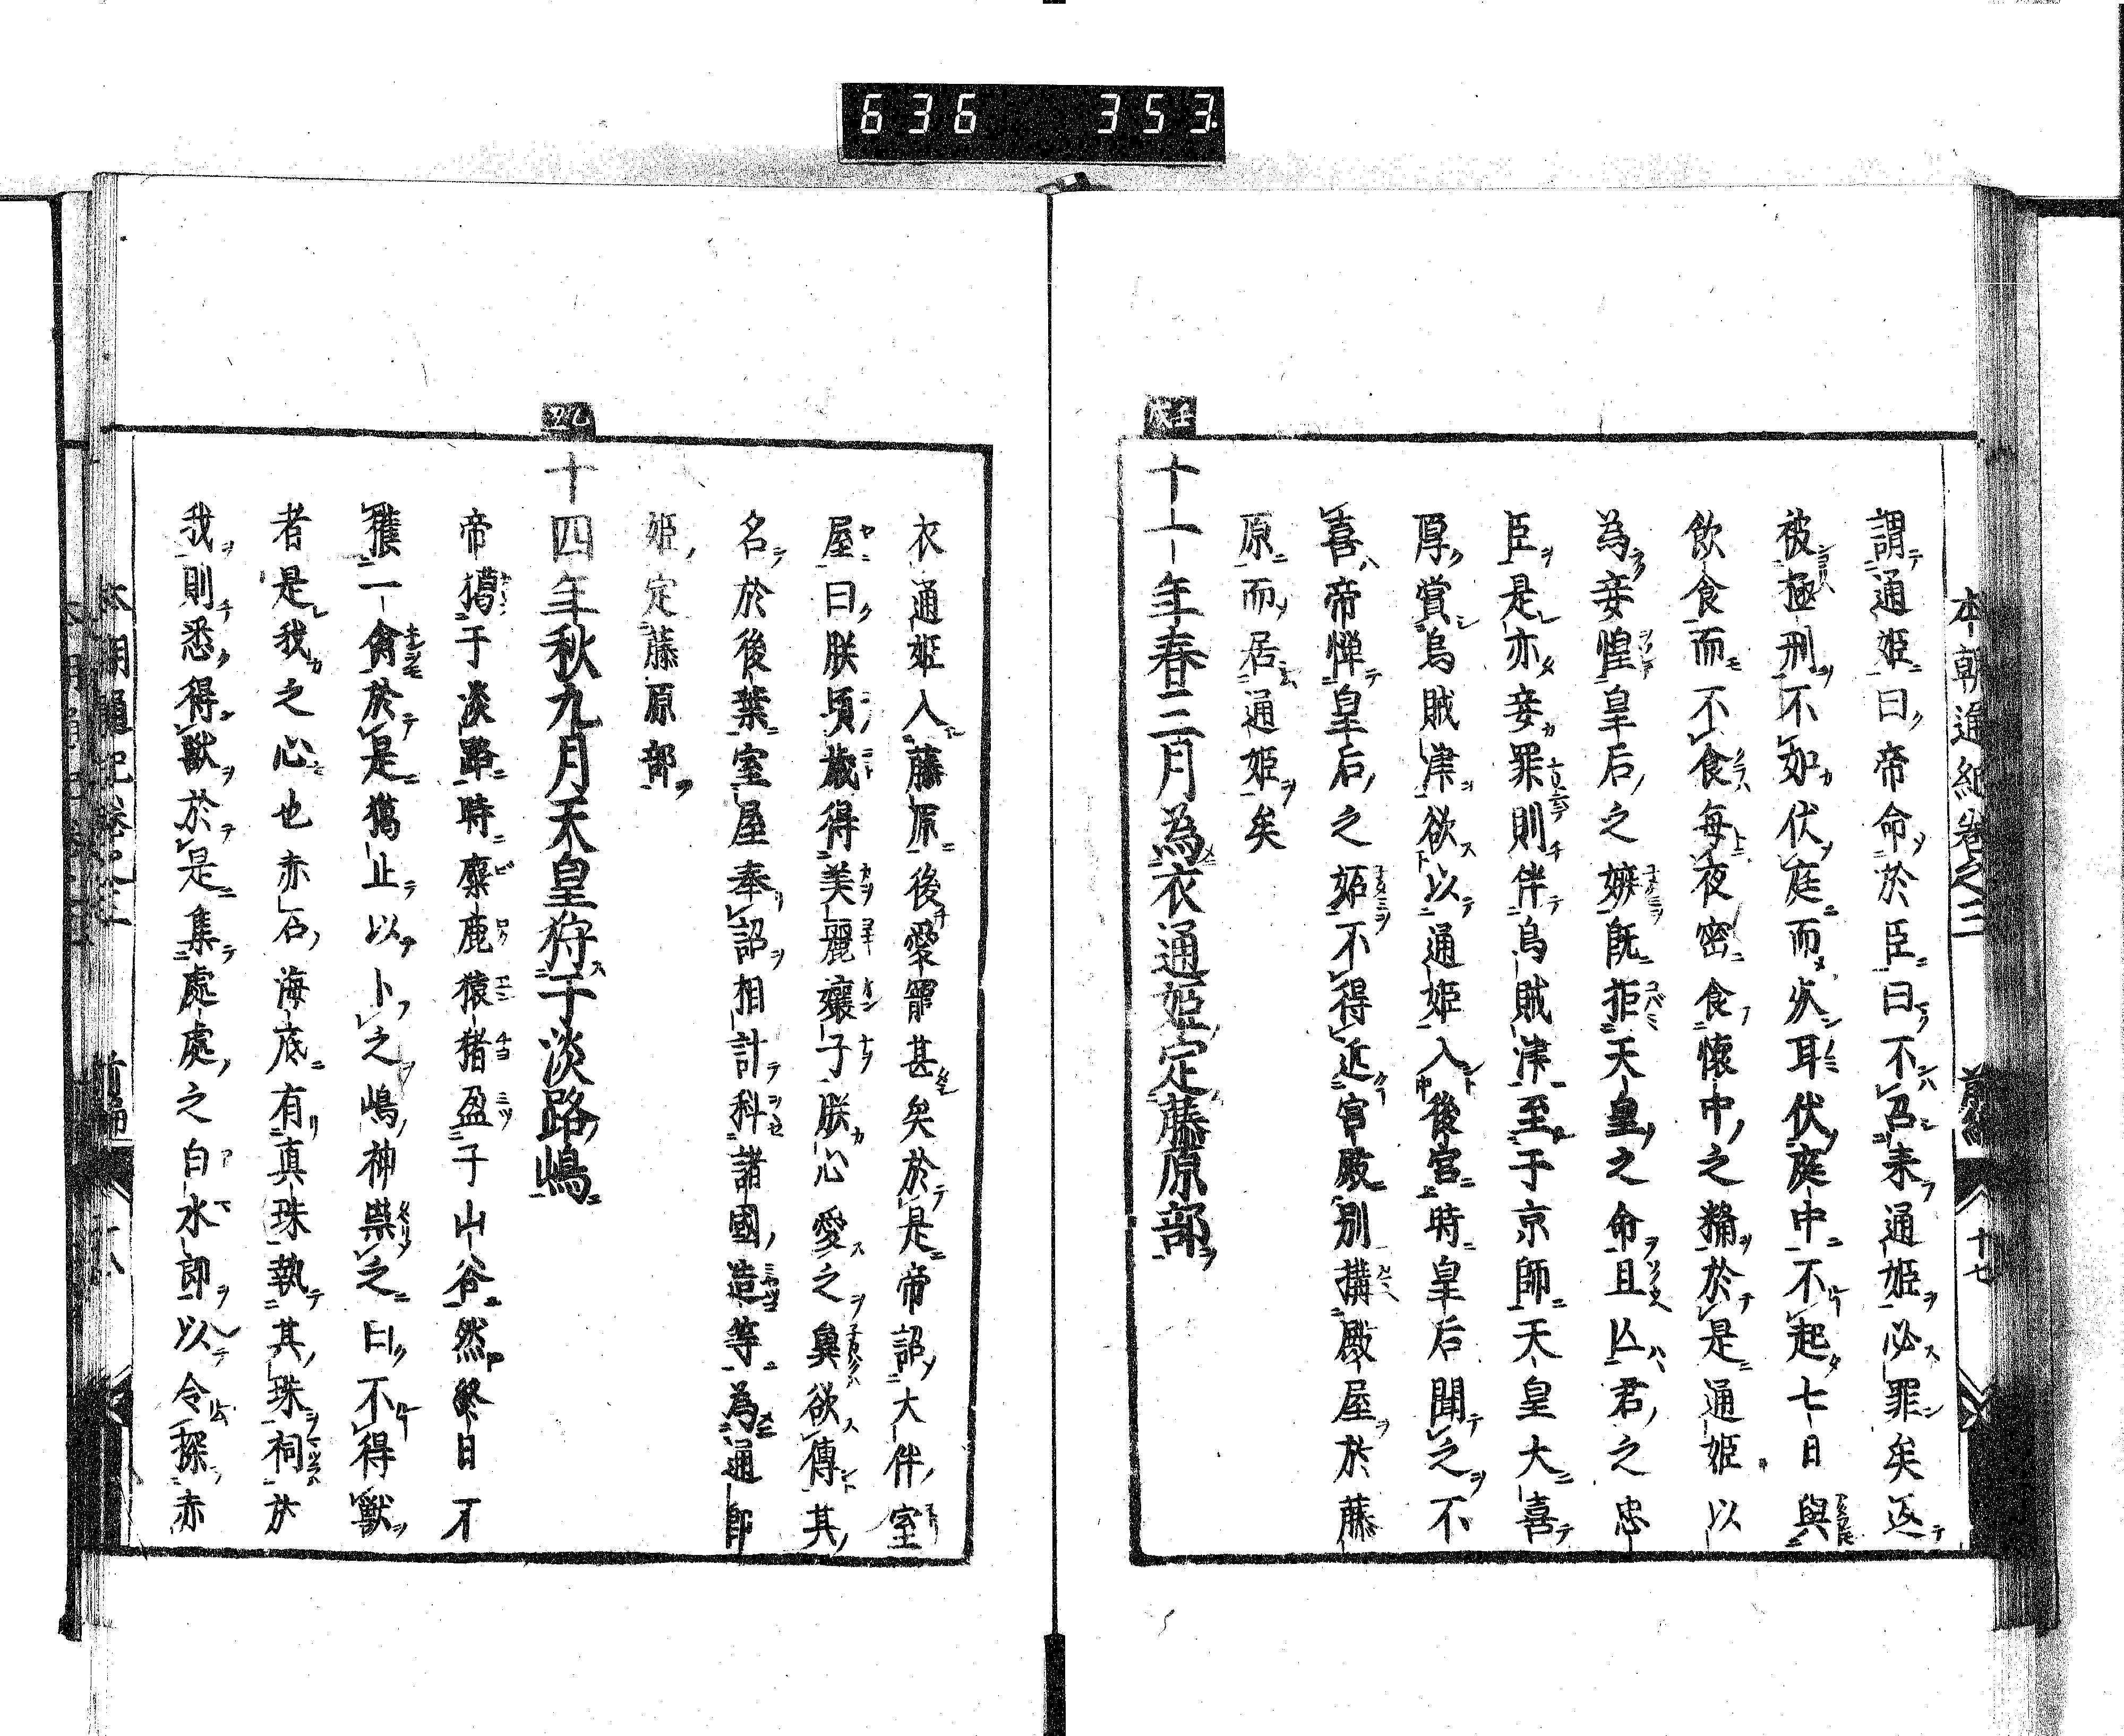 636 353
本朝通紀卷之三 前編 十七
謂通姬曰帝命於臣曰不召来通姬必罪矣返
被極刑不如伏庭而死耳伏庭中不起七日與
飲食而不食每夜密食懷中之糒於是通姬以
為妾惶皇后之嫉既拒天皇之命且亡君之忠
臣是亦妾罪則伴烏賊津至于京師天皇大喜
厚賞烏賊津欲以通姬入後宮時皇后聞之不
喜帝憚皇后之妬不得近宮故別搆殿屋於藤
原而居通姬矣
壬戌
十一年春三月為衣通姬定藤原部
衣通姬入藤原後愛寵甚矣於是帝詔大伴室
屋曰朕頃歲得美麗孃子朕心愛之異欲傳其
名於後葉室屋奉詔相計科諸國造等為通郎
姬定藤原部
乙丑
十四年秋九月天皇狩于淡路嶋
帝獦于淡路時麋鹿猿猪盈于山谷然終日不
獲一禽於是獦止以卜之嶋神祟之曰不得獸
者是我之心也赤石海底有真珠執其珠祠於
我則悉得獸於是集處處之白水郎以令探赤
本朝通紀卷之三 前編 十八